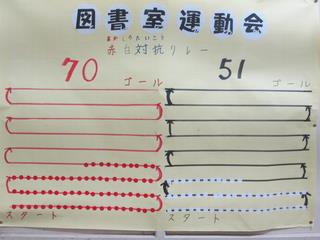 図書室運動会
あかしろたいこう
赤白対抗リレー
70 ゴール 51 ゴール
スタート スタート